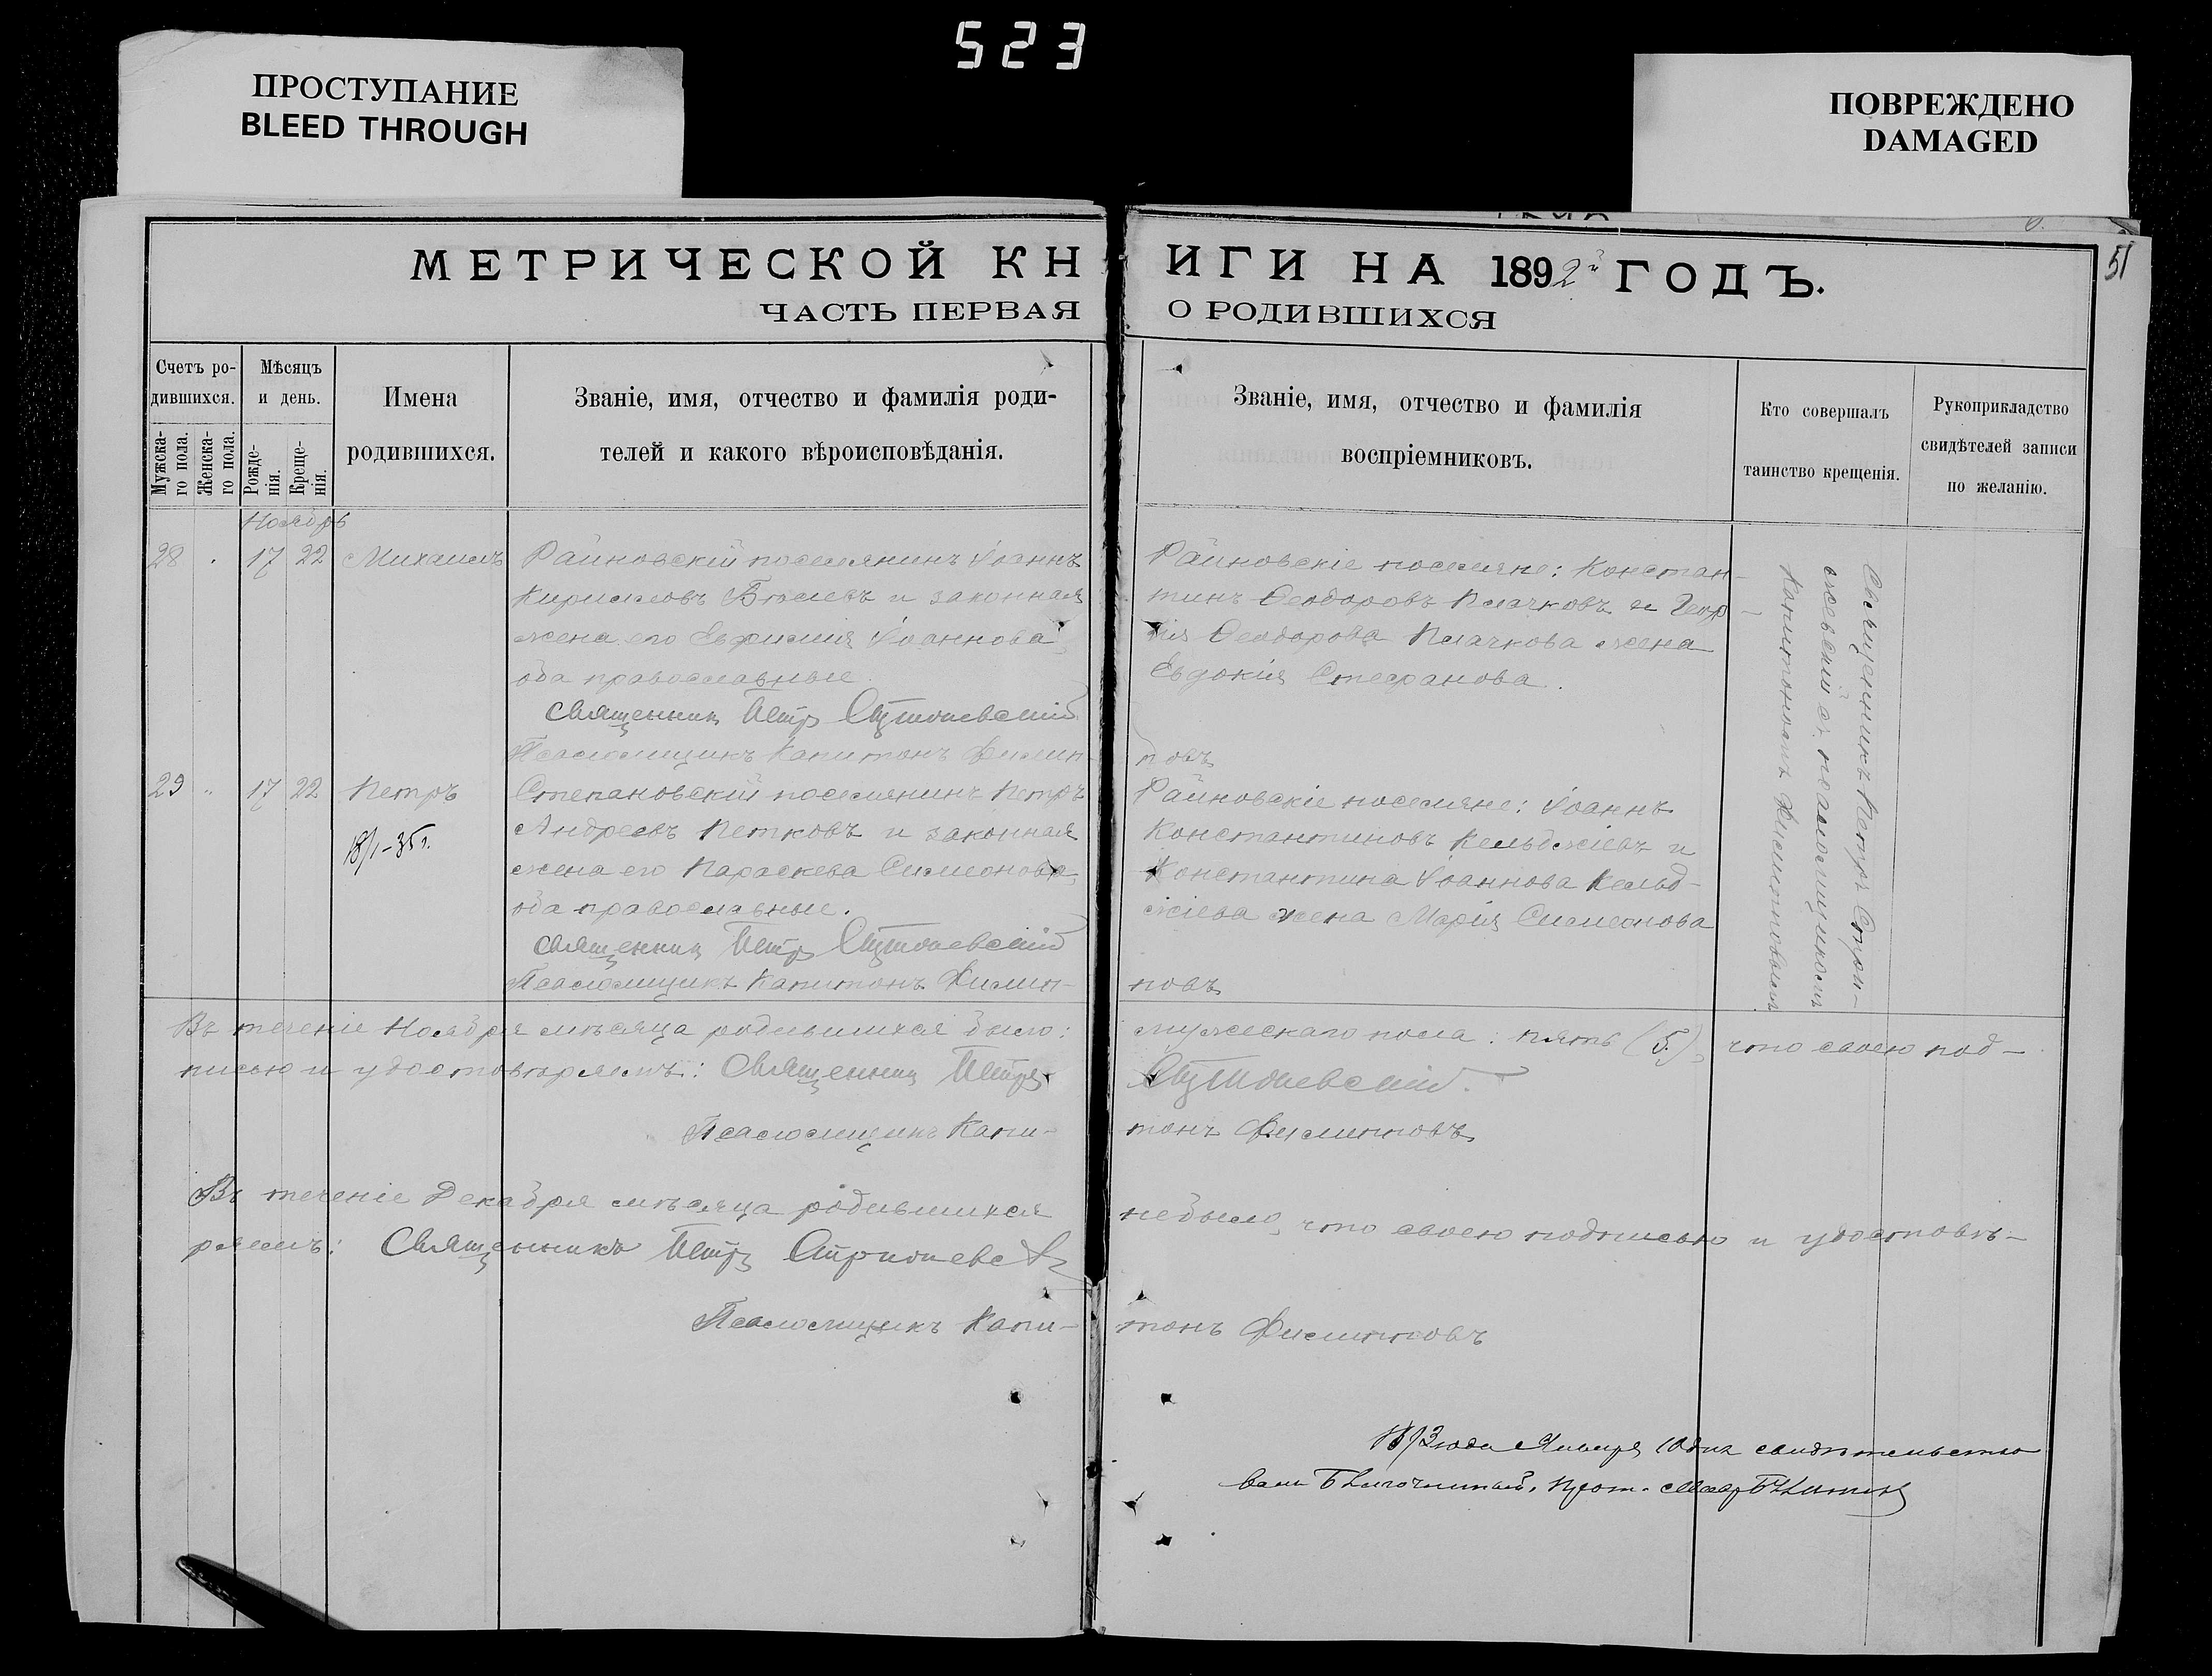 523
ПРОСТУПАНИЕ
BLEED THROUGH
ПОВРЕЖДЕНО
DAMAGED
51
МЕТРИЧЕСКОЙ КНИГИ НА 1892й ГОДЪ.
ЧАСТЬ ПЕРВАЯ О РОДИВШИХСЯ
Счетъ ро-
дившихся.
Мужска-
го пола.
Женска-
го пола.
Мѣсяцъ
и день.
Рожде-
нія.
Креще-
нія.
Имена
родившихся.
Званіе, имя, отчество и фамилія роди-
телей и какого вѣроисповѣданія.
Званіе, имя, отчество и фамилія
воспріемниковъ.
Кто совершалъ
таинство крещенія.
Рукоприкладство
свидѣтелей записи
по желанію.
Ноябрь
28 . 17 22 Михаилъ
Райновскій поселянинъ Іоаннъ
Кирилловъ и законная
жена его Евфимія Іоаннова,
оба православные.
Священникъ Петръ
Псаломщикъ Капитонъ Филип-
Райновскіе поселяне: Констан-
тинъ Ѳеодоровъ Плачковъ и Геор-
гія Ѳеодорова Плачкова жена
Евдокія Стефанова.
повъ
29 " 17 22 Петръ
18/I-35г.
Степановскій поселянинъ Петръ
Андреевъ Петковъ и законная
жена его Параскева Симеонова,
оба православные.
Священникъ Петръ
Псаломщикъ Капитонъ Филип-
Райновскіе поселяне: Іоаннъ
Константиновъ Кельбжіевъ и
Константина Іоаннова Кельб-
жіева жена Марія Симеонова
повъ
Священникъ Петръ
съ псаломщикомъ
Капитономъ Филипповымъ
Въ теченіе Ноября мѣсяца родившихся было: мужескаго пола: пять (5), что своею под-
писью и удостовѣряемъ: Священникъ Петръ
Псаломщикъ Капи- тонъ Филипповъ
Въ теченіе Декабря мѣсяца родившихся небыло, что своею подписью и удостовѣ-
ряемъ: Священникъ Петръ
Псаломщикъ Капи- тонъ Филипповъ
года Января 10 дня свидѣтельство
валъ Благочинный, Прот.